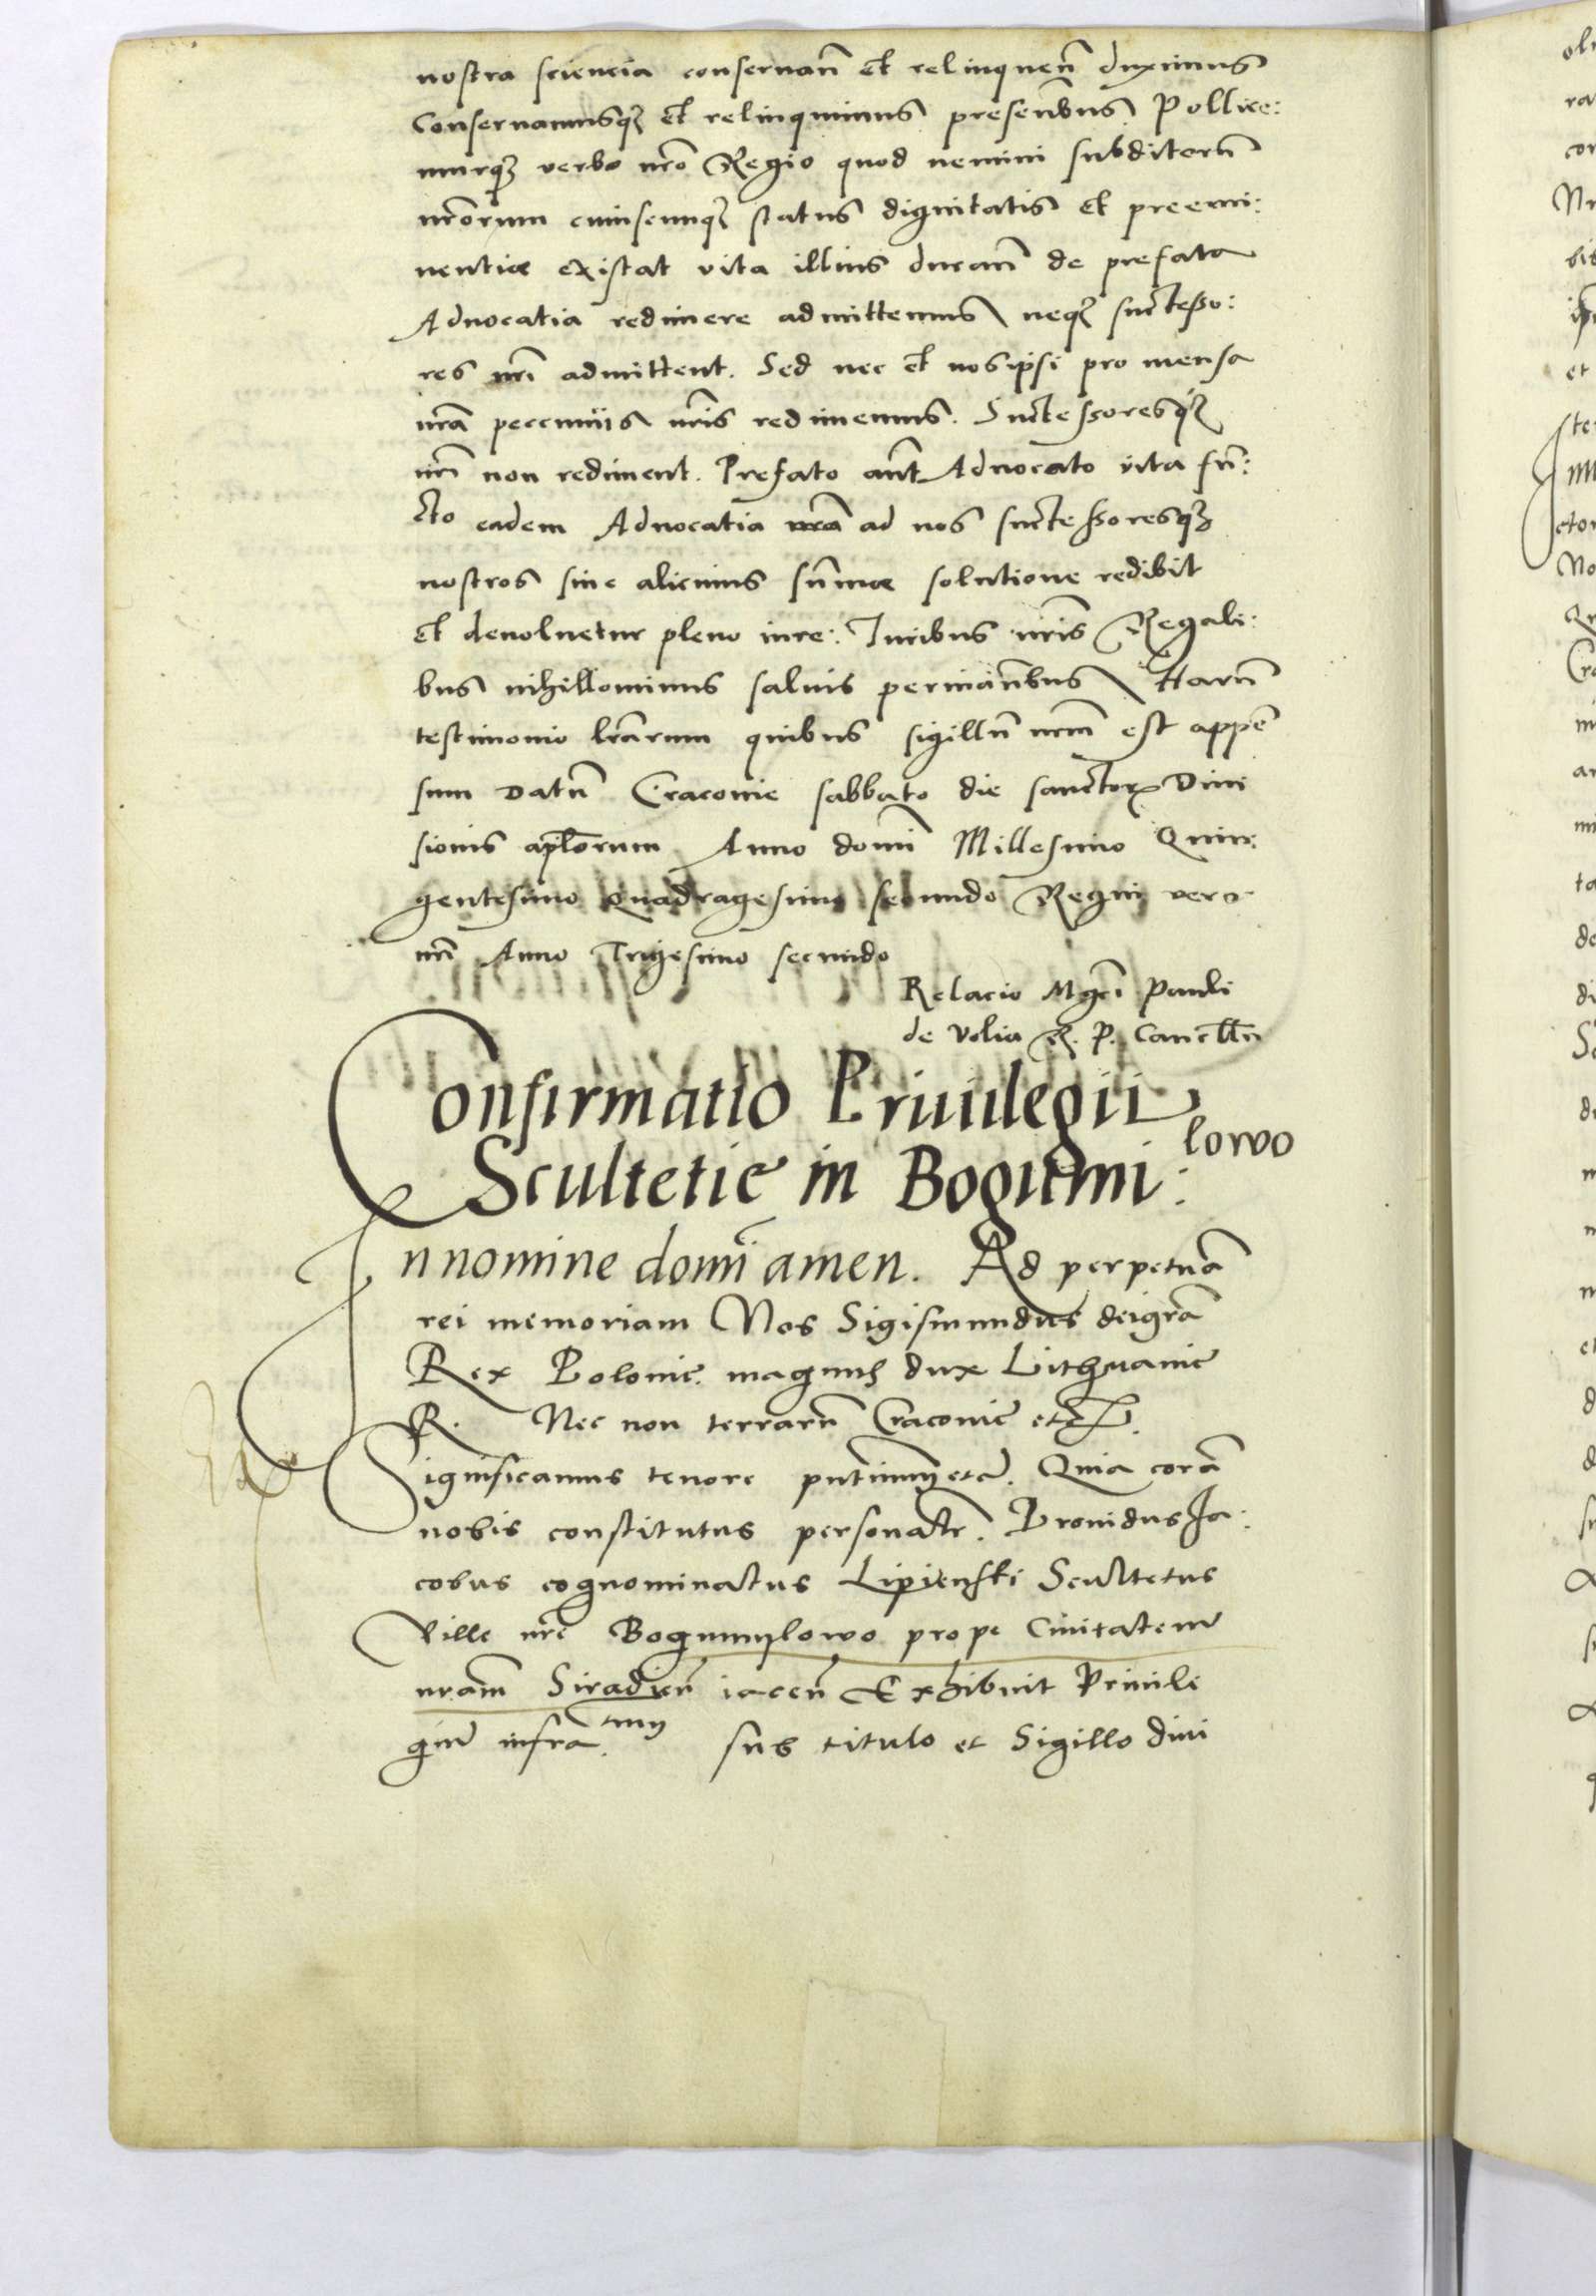 nostra sciencia conseruan̄ et relinquen̄ duximus
Conseruamusq3 et relinquimus presentibus Pollice:
murq3 verbo nr̄o Regio quod nemini subditorū
nr̄orum cuiuscunq3 status dignitatis et preemi:
nentiae existat vita illius duran̄ de prefata
Aduocatia redimere admittemus neq3 successo:
res nr̄i admittent. Sed nec et nosipsi pro mensa
nr̄a peccunijs nr̄is redimemus. Successoresq3
nr̄i non rediment. Prefato aut̄ Aduocato vita fū:
cto eadem Aduocatia nr̄a ad nos successoresq3
nostros sine alicuius sūmae solutione redibit
et deuoluetur pleno iure: Iuribus nr̄is Regali:
bus nihillominus saluis perman̄bus Harū
testimonio lr̄arum quibus sigillū nr̄m est appē
sum Datū Cracouie sabbato die sanctor̄ Diui
sionis apl̄orum Anno domī Millesimo Quin:
gentesimo Quadragesimo secundo Regni vero
nr̄i Anno Trigesimo secundo
Relacio Mgci Pauli
de Volia R. P. Cancell̄n
Confirmatio Priuilegii
Scultetie in Bogumi: lowo
In nomine domī amen. Ad perpetuā
rei memoriam Nos Sigismundus dei grā
Rex Polonie magnus dux Lithuanie
R. Nec non terrarū Cracouie etc.
Significamus tenore pn̄tium etc. Quia corā
nobis constitutus personalr̄. Prouidus Ja:
cobus cognominatus Lipienski Scultetus
Ville nr̄e Bogumylowo prope Ciuitatem
nr̄am Siradien̄ iacen̄ Exhibuit Priuile
giū infra. sub titulo et Sigillo diui